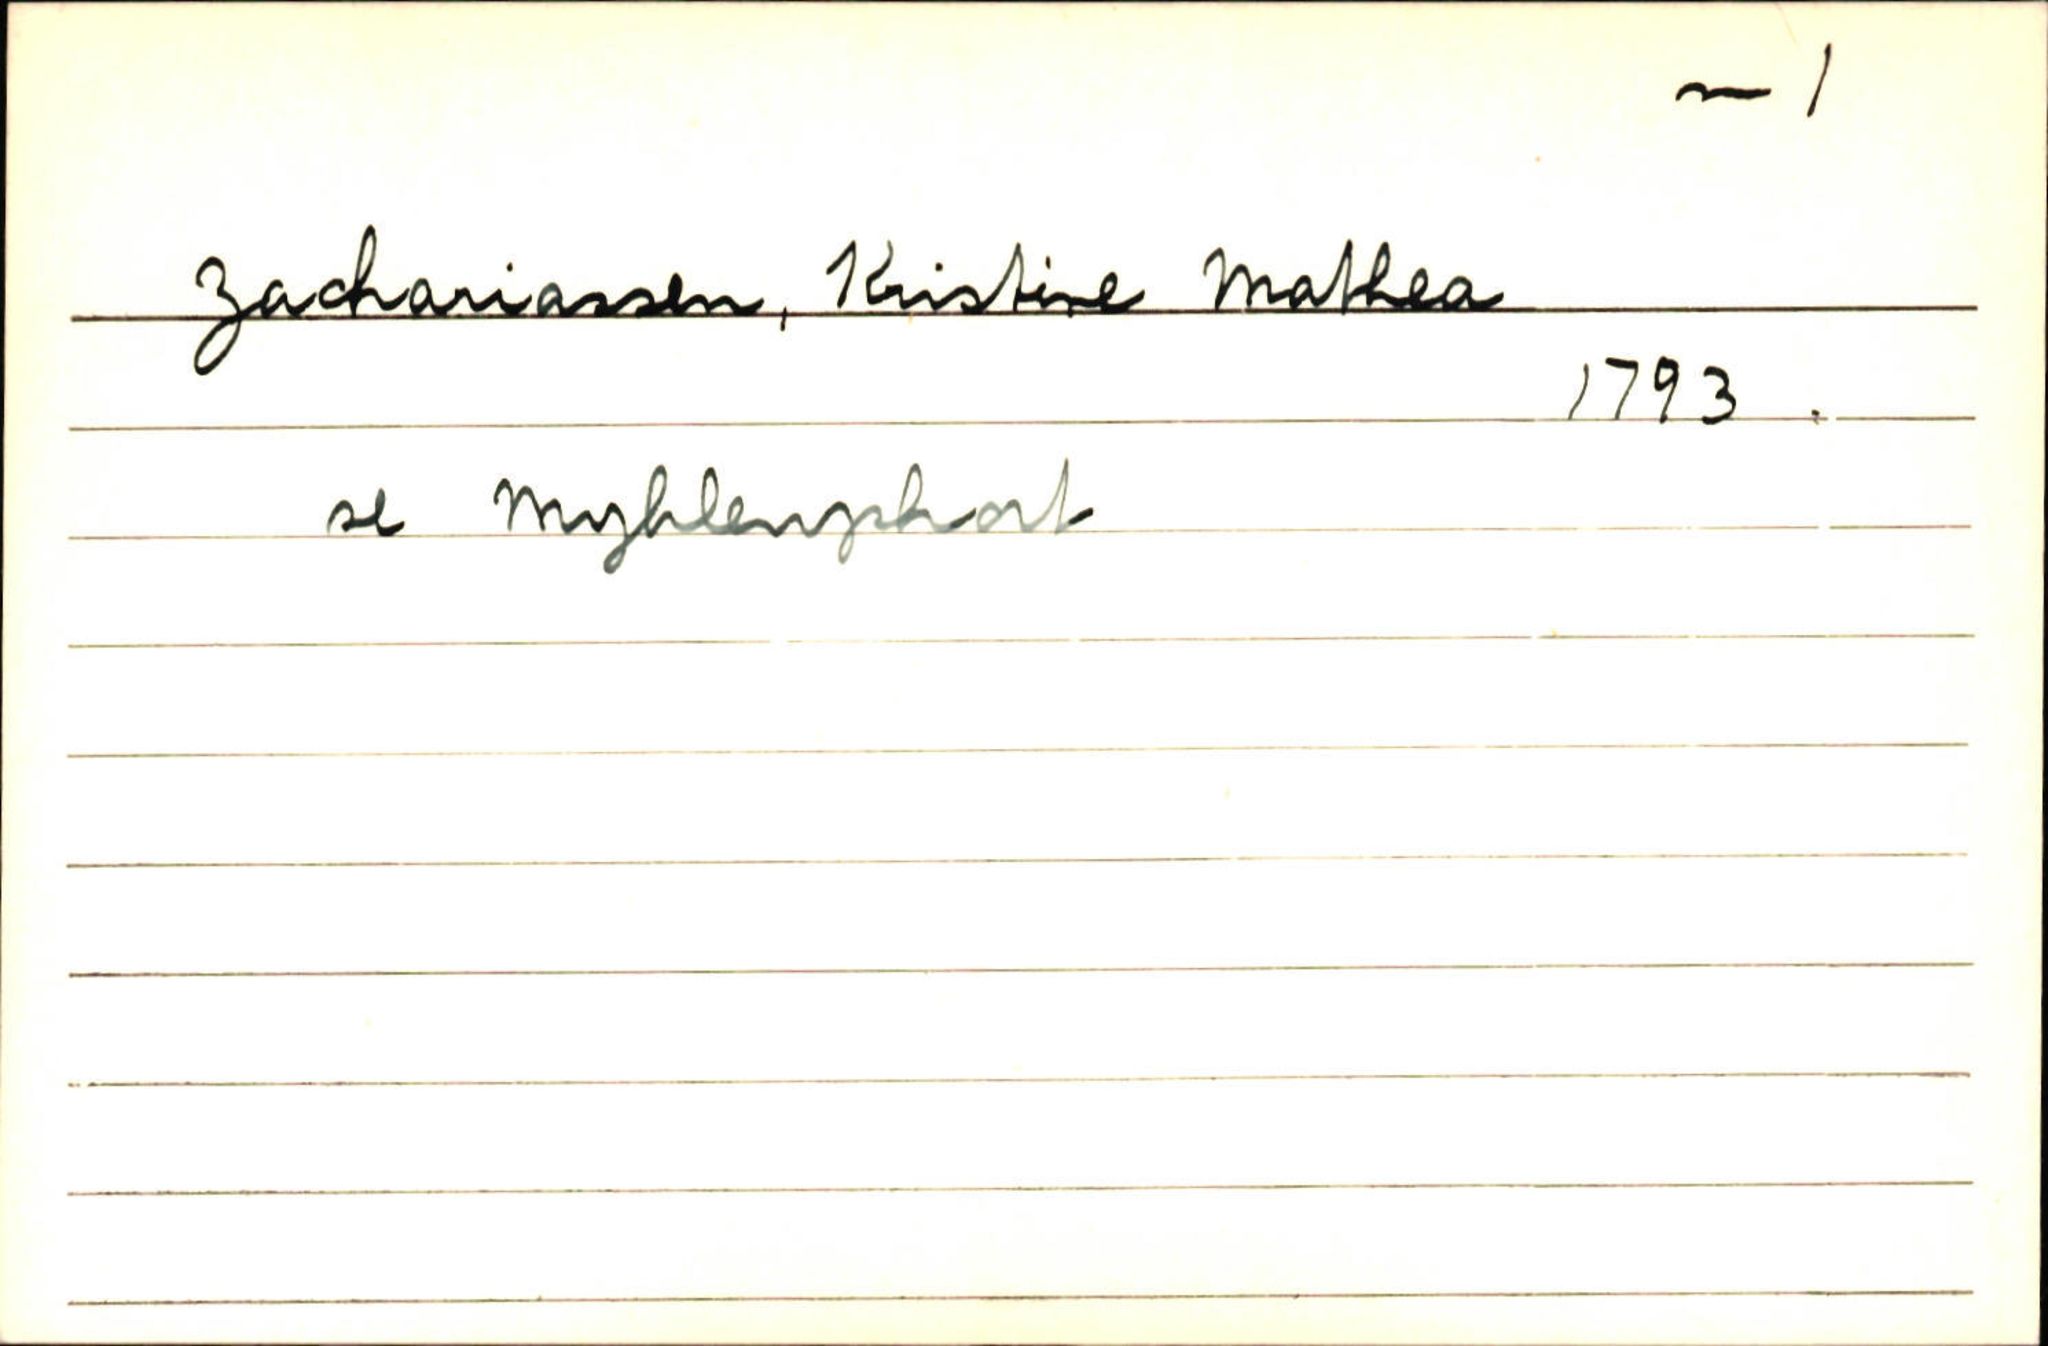 ~ 1
Zachariassen, Kristine Mathea
1793.
se Myhlenphort